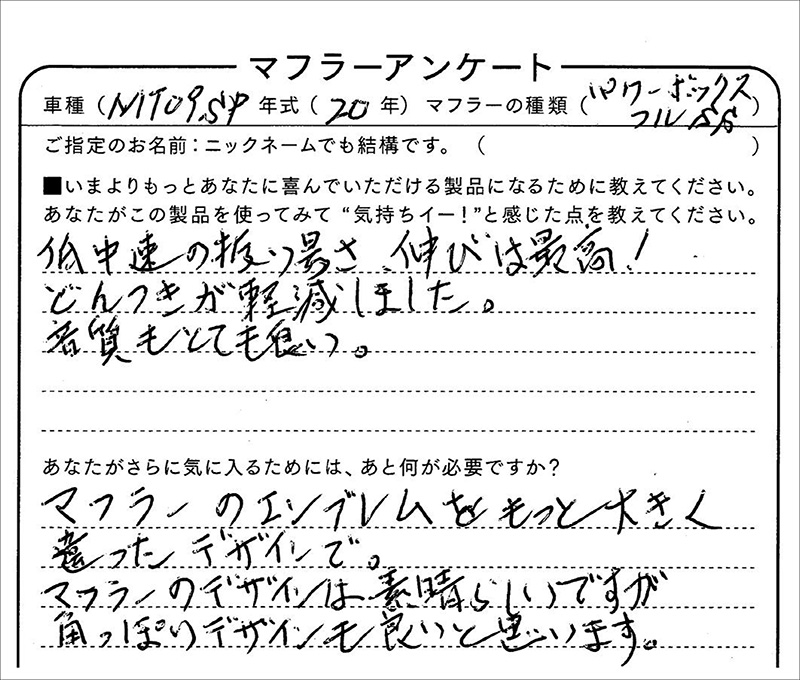 マフラーアンケート
車種（MT09.SP 年式（20 年）マフラーの種類（パワーボックス フルSS）
ご指定のお名前：ニックネームでも結構です。（ ）
■いまよりもっとあなたに喜んでいただける製品になるために教えてください。
あなたがこの製品を使ってみて“気持ちイー！”と感じた点を教えてください。
低中速の扱い易さ、伸びは最高！
どんつきが軽減しました。
音質もとても良い。
あなたがさらに気に入るためには、あと何が必要ですか？
マフラーのエンブレムをもっと大きく
違ったデザインで。
マフラーのデザインは素晴らしいですが
角っぽいデザインも良いと思います。